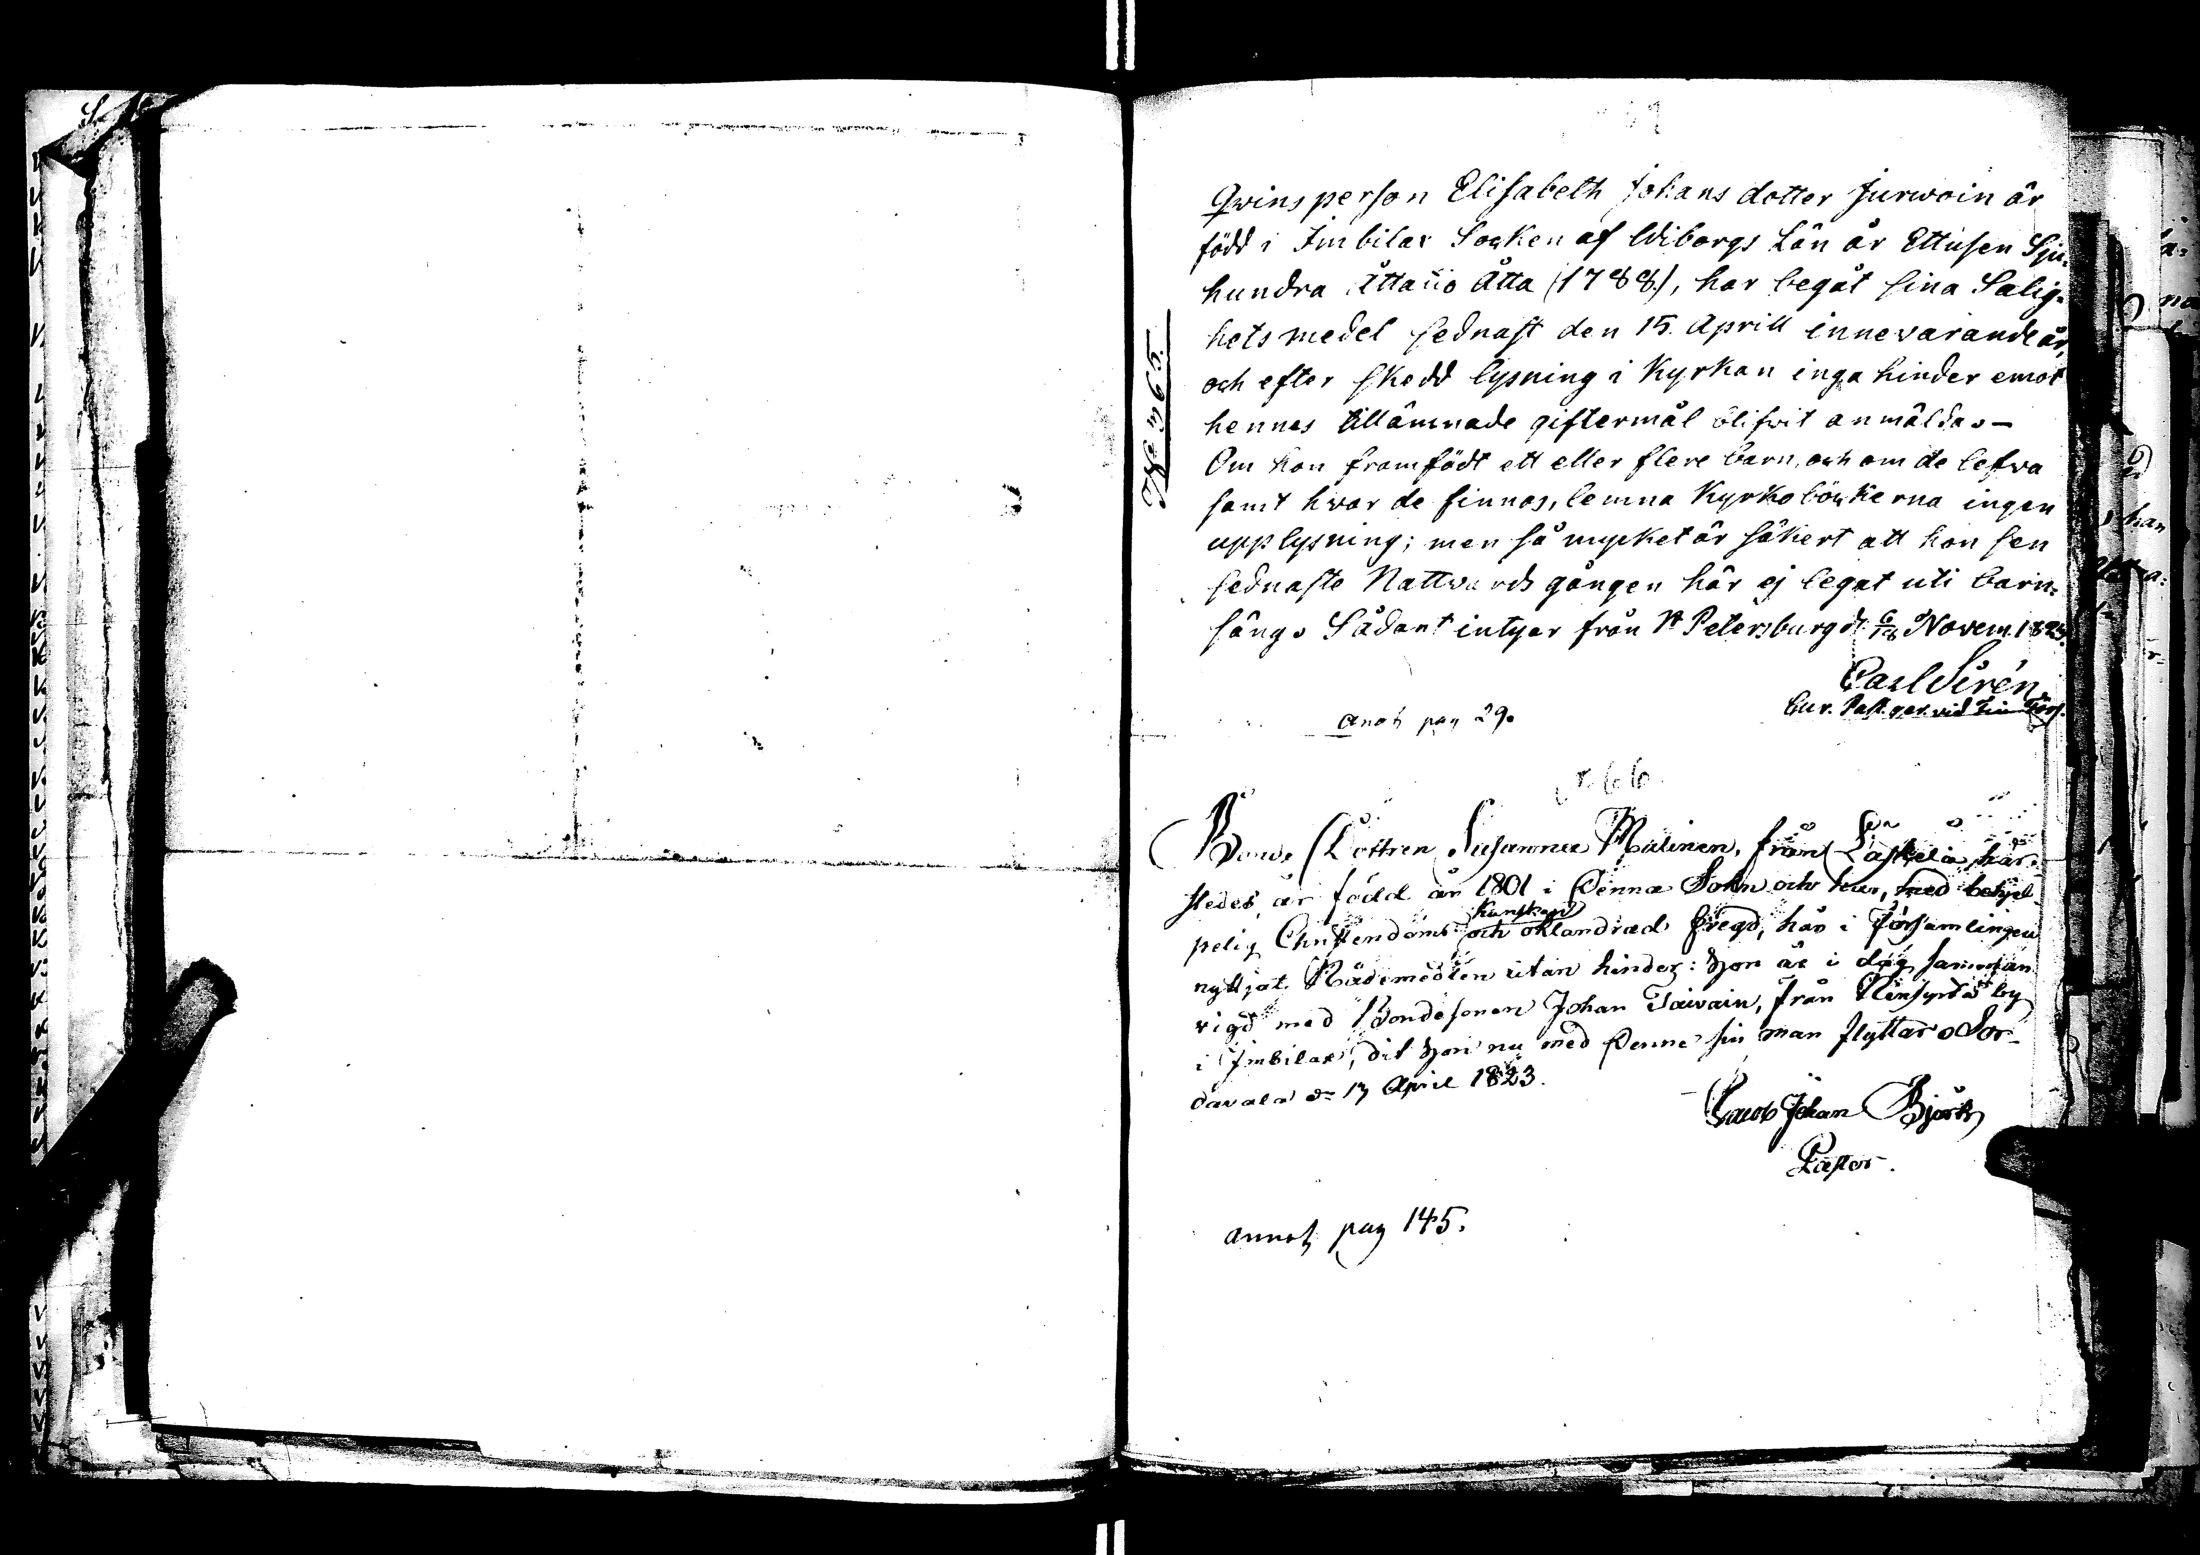 Qvinsperson Elisabeth Johans dotter Jurwoin är
född i Imbilax Socken af Wiborgs Län år Ettusen Sju-
hundra Åttatio Åtta (1788), har begåt sina Salig-
hets medel sednast den 15. Aprill innevarande år,
och efter skedd lysning i Kyrkan inga hinder emot
hennes tillämnade giftermål blifvit anmälda. –
Om hon framfödt ett eller flere barn, och om de lefva
samt hvar de finnas, lemna Kyrkoböckerna ingen
upplysning; men så mycket är säkert att hon sen
sednaste Nattvards gången här ej legat uti barn-
säng. Sådant intygar från St Petersburg d. 6/18 Novem. 1823.
Carl Sirén
Cur. Past. ger. vid
Nº 365.
anot pag 29.
66
Bonde Dottren Susanna Malinen, från Läskelä här-
stedes, är född år 1801 i Denna Sokn och har, med behjel-
pelig Christendoms Kunskap och oklandrad fregd, här i Församlingen
nyttjat Nådemedlen utan hinder: Hon är i dag samman
vigd med Bondesonen Johan Taivain, från by
i Imbilax, dit Hon nu med Denne sin man flyttar. Sor-
davala d. 13 April 1823.
Jacob Johan Björk
Pastor.
annot pag 145.